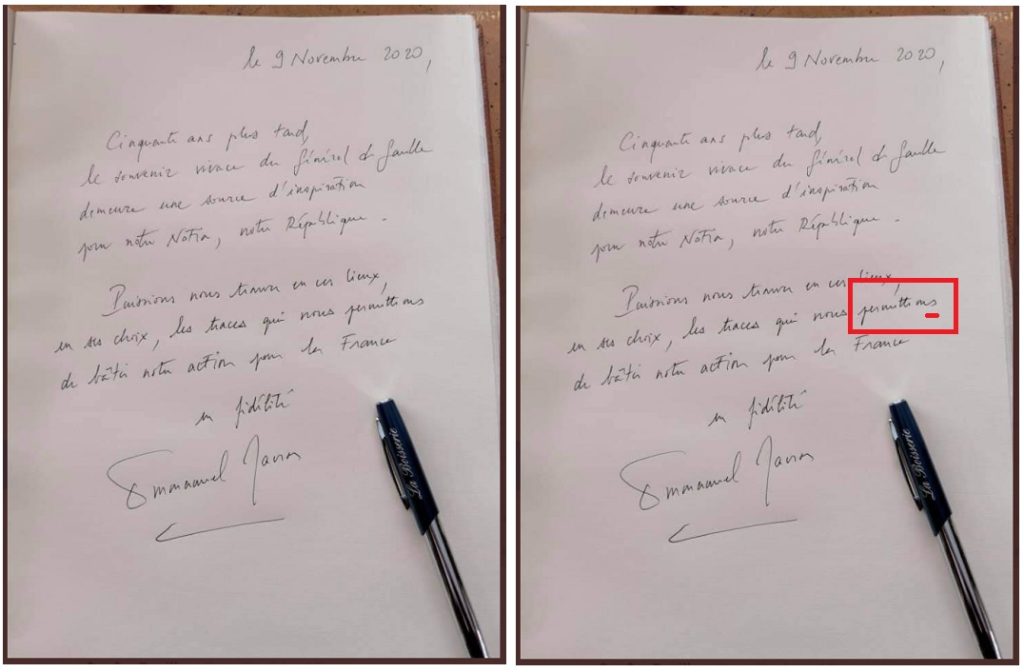 le 9 Novembre 2020,
Cinquante ans plus tard,
le souvenir vivace du Général de Gaulle
demeure une source d'inspiration
pour notre Nation, notre République.
Puissions nous trouver en ces lieux,
en ses choix, les traces qui nous permettions
de bâtir notre action pour la France
en fidélité
Emmanuel Macron
La Boisserie
le 9 Novembre 2020,
Cinquante ans plus tard,
le souvenir vivace du Général de Gaulle
demeure une source d'inspiration
pour notre Nation, notre République.
Puissions nous trouver en ces lieux,
en ses choix, les traces qui nous permettions
de bâtir notre action pour la France
en fidélité
Emmanuel Macron
La Boisserie